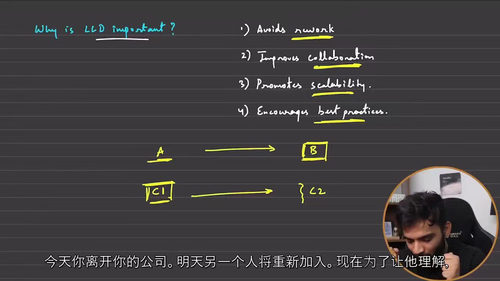 Why is LLD important?
1) Avoids rework
2) Improves collaboration
3) Promotes scalability.
4) Encourages best practices.
A
B
C1
C2
今天你离开你的公司。明天另一个人将重新加入。现在为了让他理解,